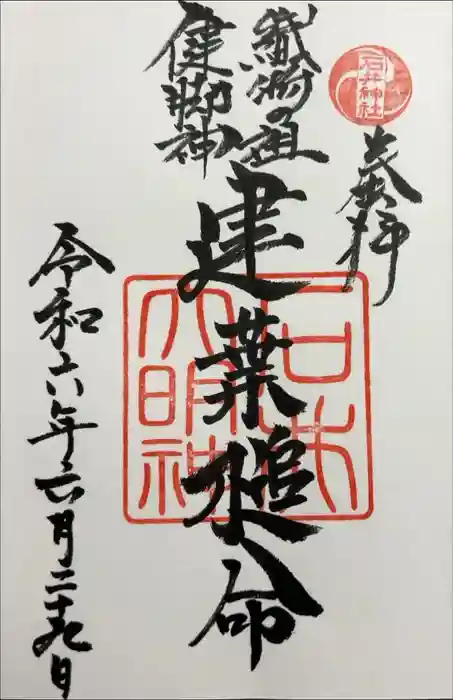 石井神社
奉拝
織物の祖
健脚神
建葉槌命
石井
大明神
令和六年六月二十九日